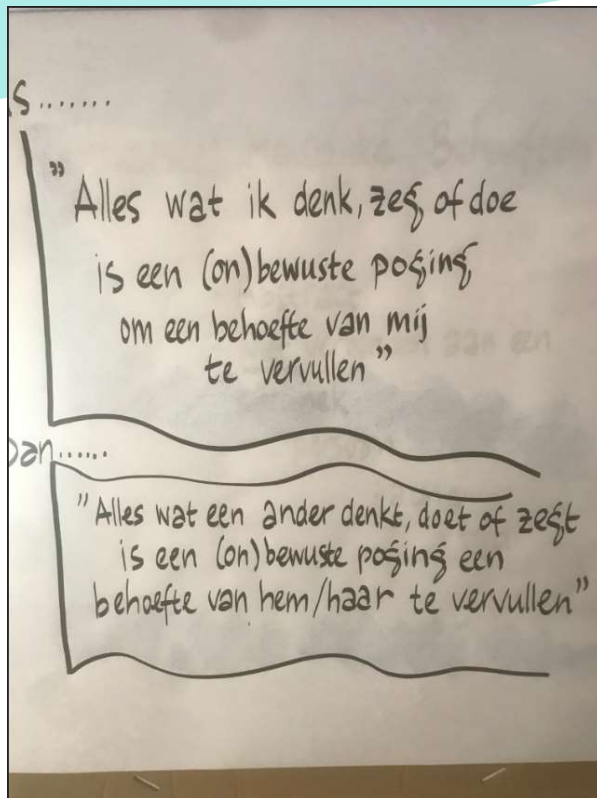 ls.......
"Alles wat ik denk, zeg of doe
is een (on)bewuste poging
om een behoefte van mij
te vervullen"
Dan......
"Alles wat een ander denkt, doet of zegt
is een (on)bewuste poging een
behoefte van hem/haar te vervullen"